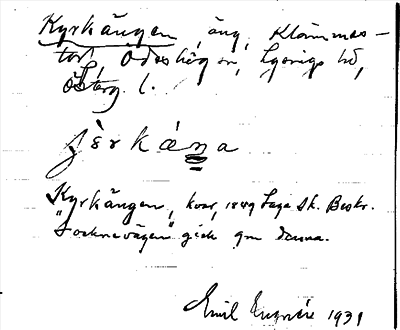 Kyrkängen, äng, Klämmes-
torp, Ödeshög sn, Lysings hd,
Österg. l.
Kyrkängen, kvar, 1849 Laga Sk. Beskr.
"Socknevägen" gick gm denna.
Emil 1931